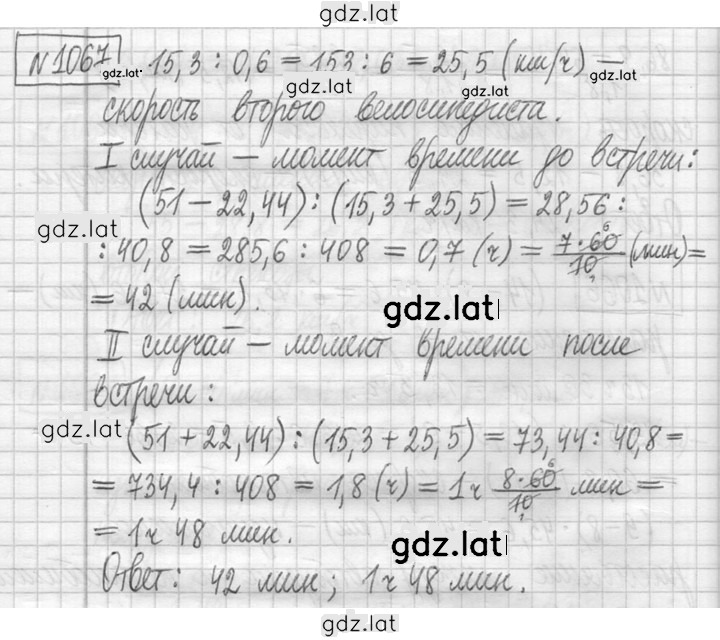 gdz.lat
№1067 gdz.lat. 15,3 : 0,6 = 153 : 6 = 25,5 (км/ч) — gdz.lat
gdz.lat gdz.lat
скорость второго велосипедиста.
I случай — момент времени до встречи:
(51 − 22,44) : (15,3 + 25,5) = 28,56 :
gdz.lat
: 40,8 = 285,6 : 408 = 0,7 (ч) = 7·60/10 (мин) =
= 42 (мин).
gdz.lat
II случай — момент времени после
встречи:
gdz.lat (51 + 22,44) : (15,3 + 25,5) = 73,44 : 40,8 =
= 734,4 : 408 = 1,8 (ч) = 1ч 8·60/10 мин =
= 1ч 48 мин.
gdz.lat
Ответ: 42 мин; 1ч 48 мин.
gdz.lat